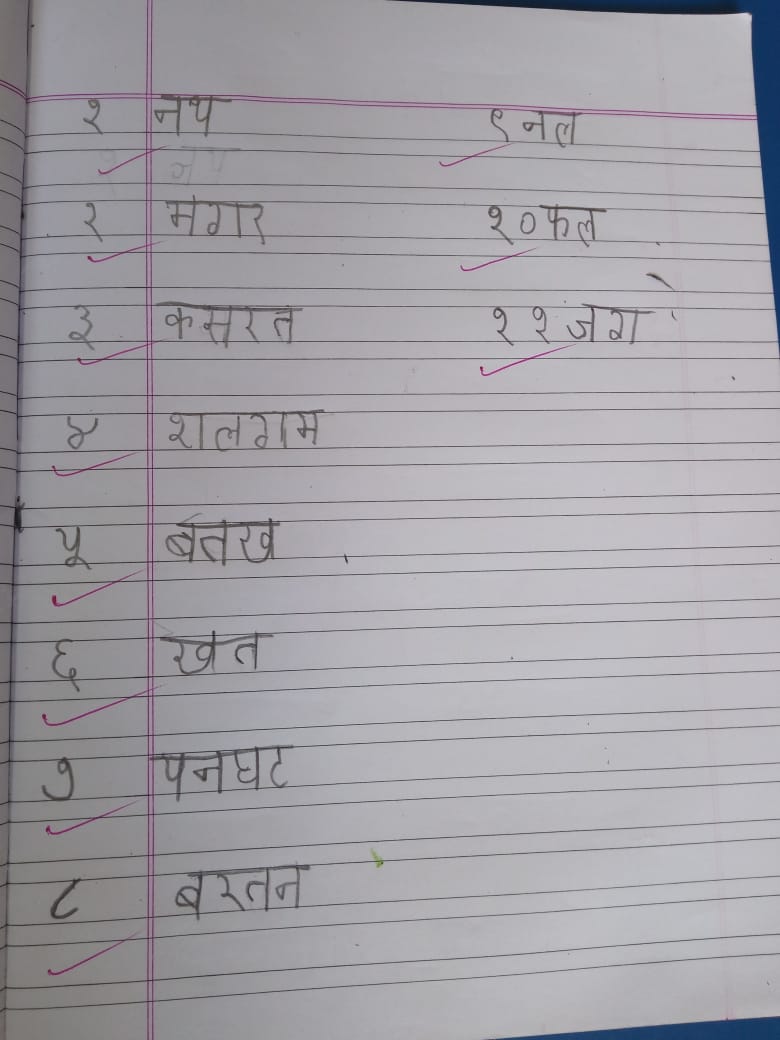 १ नथ
२ मगर
३ कसरत
४ शलगम
५ बतख
६ खत
७ पनघट
८ बरतन
९ नल
१० फल
११ जग